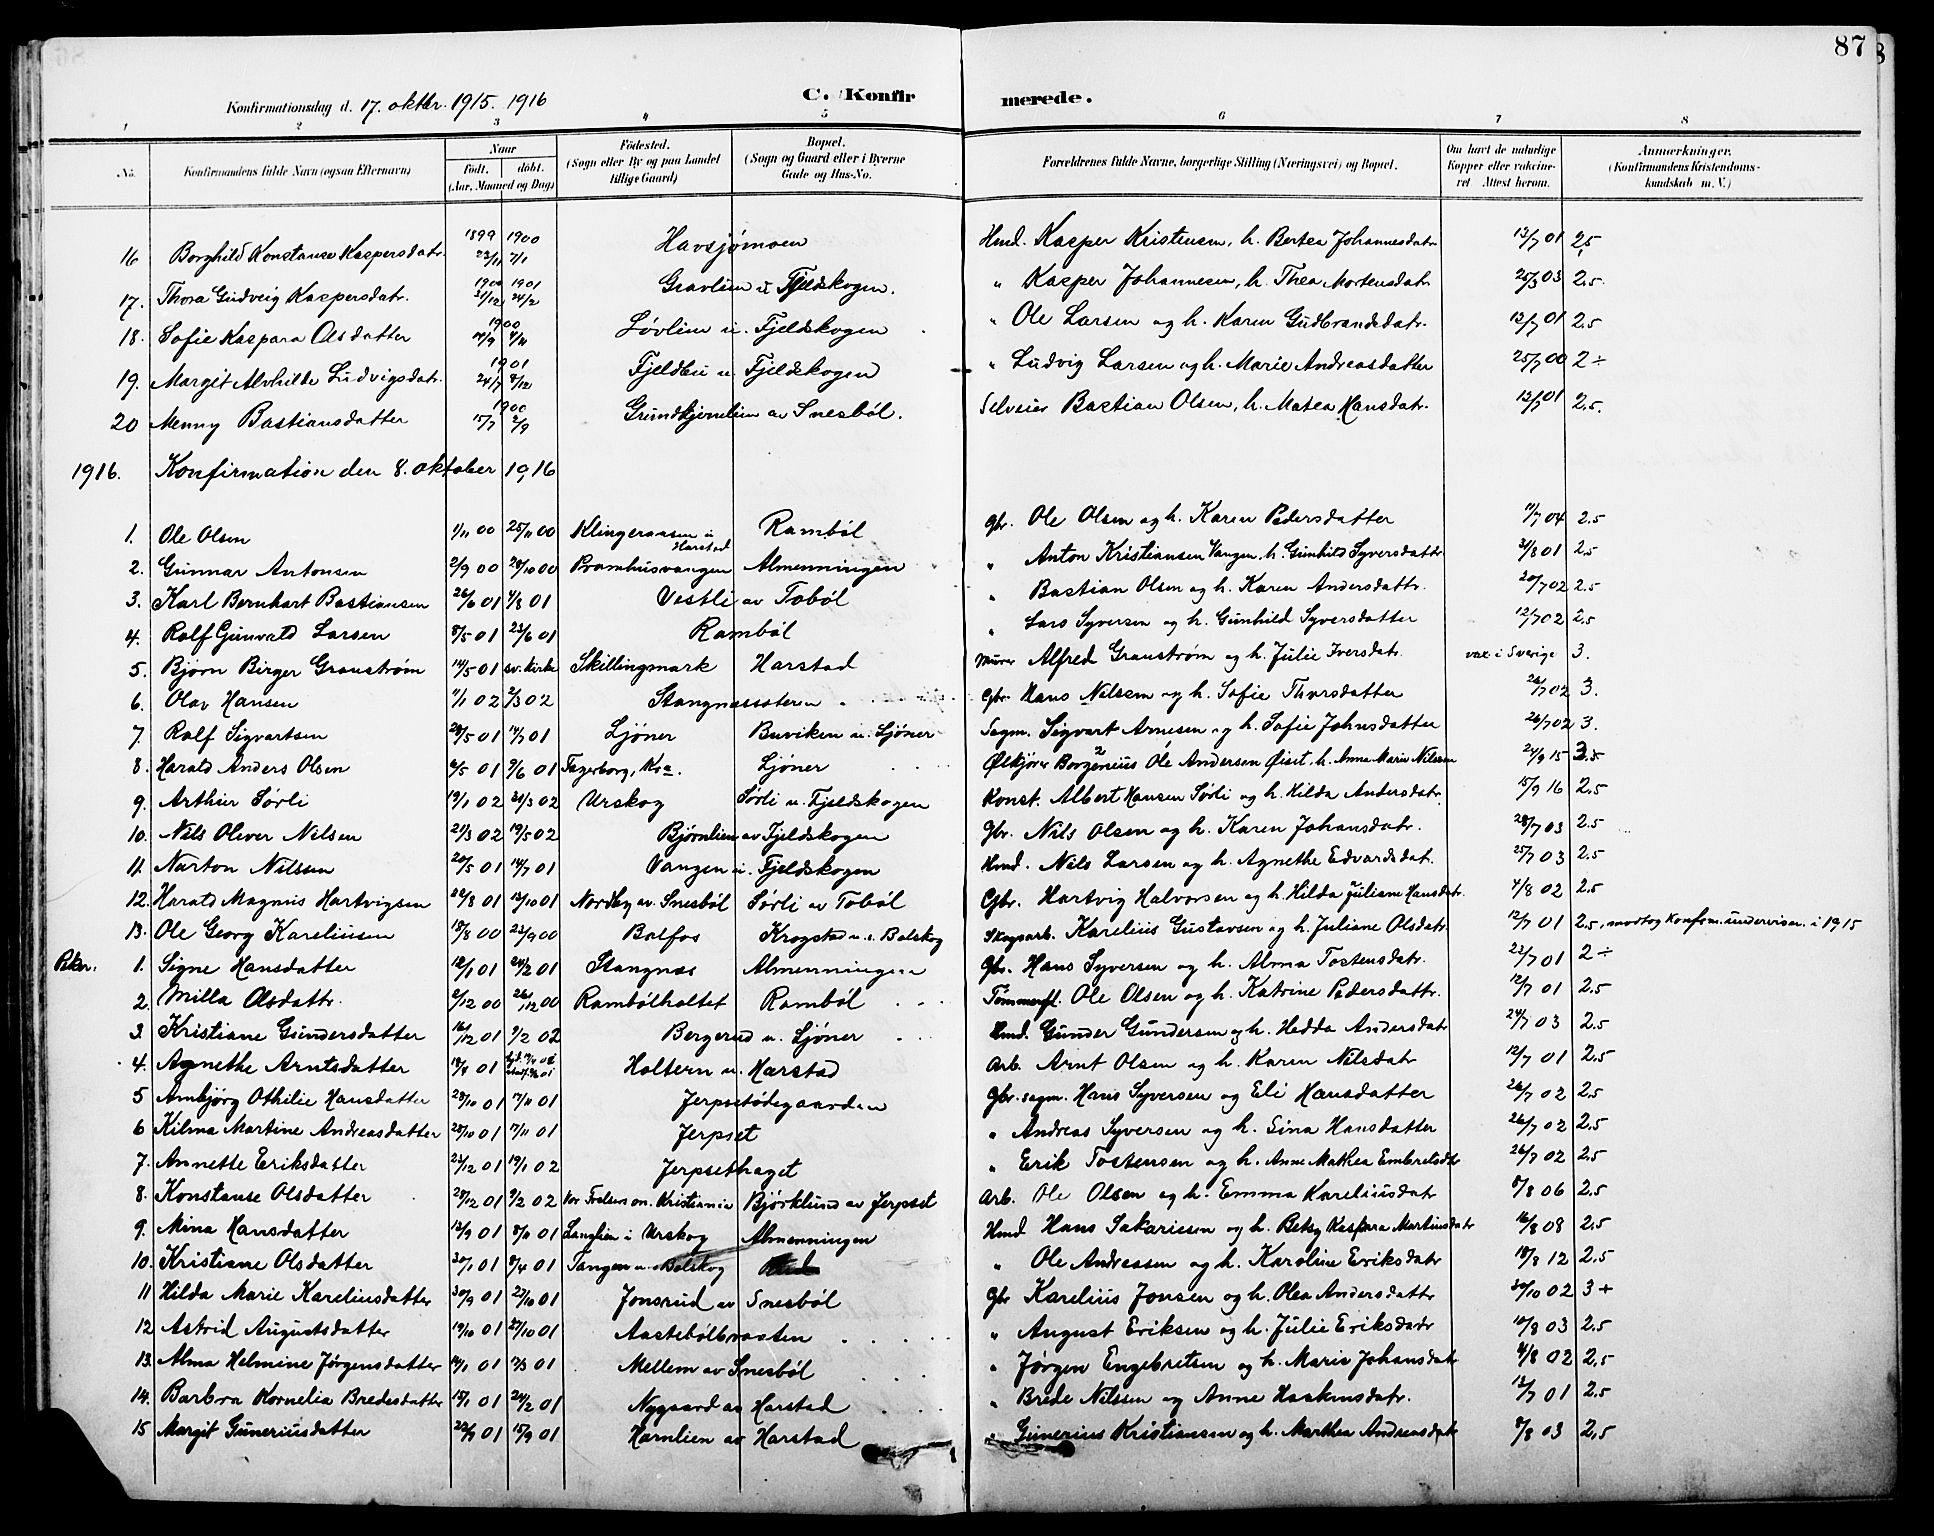 87
Konfirmationsdag d. 17. oktbr. 1915. 1916 C. Konfirmerede.
1 2 3 4 5 6 7 8
No. Konfirmandens fulde Navn (ogsaa Efternavn) Naar født. døbt. (Aar, Maaned og Dag) Fødested. (Sogn eller By og paa Landet tillige Gaard) Bopæl. (Sogn og Gaard eller i Byerne Gade og Hus-No. Forældrenes fulde Navne, borgerlige Stilling (Næringsvei) og Bopæl. Om havt de naturlige Kopper eller vaccineret Attest herom. Anmærkninger. (Konfirmandens Kristendomskundskab m. V.)
16 Borghild Konstanse Kaspersdatr. 1899 23/11 1900 7/1 Havsjømoen Hmd. Kasper Kristensen, h. Bertea Johannesdatr 13/7 01 2,5
17. Thora Gudveig Kaspersdatr. 1900 31/12 1901 24/2 Gravlien u. Fjeldskogen. " Kasper Johannesen, h. Thea Mortensdatr 25/3 03 2,5.
18. Sofie Kaspara Olsdatter 1900 4/11 Løvlien u. Fjeldskogen " Ole Larsen og h. Karen Gudbrandsdatr. 12/7 01 2.5
19. Margit Alvhilde Ludvigsdatr. 1901 24/7 8/12 Fjeldbu u. Fjeldskogen " Ludvig Larsen og h. Marie Andreasdatter 25/7 00 2 ÷
20 Menny Bastiansdatter 1900 15/7 2/9 Grundtjernlien av Snesbøl. Selveier Bastian Olsen, h. Matea Hansdatr. 12/7 01 2.5.
1916. Konfirmation den 8. oktober 1916
1. Ole Olsen 1/11 00 25/11 00 Klingeraasen u Harstad Rambøl Gbr. Ole Olsen og h. Karen Pedersdatter 11/7 04 2.5
2. Gunnar Antonsen 2/9 00 28/10 00 Bramhusvangen Almenningen " Anton Kristiansen Vangen, h. Gunhild Syversdattr 3/8 01 2.5
3. Karl Bernhart Bastiansen 26/6 01 4/8 01 Vestli av Tobøl " Bastian Olsen og h. Karen Andersdattr. 20/7 02 2.5
4. Rolf Gunvald Larsen 8/5 01 23/6 01 Rambøl " Lars Syversen og h. Gunhild Syversdatter 12/7 02 2.5
5. Bjørn Birger Granstrøm 14/5 01 sv. kirke Skillingmark Harstad Murer Alfred Granstrøm og h. Julie Iversdatr. vax. i Sverige 3.
6. Olav Hansen 11/1 02 2/3 02 Stangnæssæteren Gbr. Hans Nilsen og h. Sofie Thorsdatter 26/7 02 3.
7. Rolf Sigvartsen 28/5 01 14/7 01 Ljøner Buviken u. Ljøner Sagm. Sigvart Arnesen og h. Sofie Johnsdatter 26/7 02 3.
8. Harald Anders Olsen 6/5 01 9/6 01 Fagerborg, Kra. Ljøner Ølkjører Borgenius Ole Andersen Øisit, h. Anne Marie Nilssen 24/9 15 2.5
9. Arthur Sørli 19/1 02 31/3 02 Urskog Sørli u. Fjeldskogen Konst. Albert Hansen Sørli og h. Hilda Andersdatr. 15/9 16 2.5
10. Nils Oliver Nilsen 21/3 02 19/5 02 Bjørnlien av Fjeldskogen Gbr. Nils Olsen og h. Karen Johansdatr. 28/7 03 2.5
11. Narton Nilssen 20/5 01 14/7 01 Vangen u. Fjeldskogen Hmd. Nils Larsen og h. Agnethe Edvardsdat. 25/7 03 2.5
12. Harald Magnus Hartvigsen 22/8 01 13/10 01 Nordby av Snesbøl Sørli av Tobøl Gbr. Hartvig Halvorsen og h. Hilda Juliane Hansdatr. 4/8 02 2.5
13. Ole Georg Kareliusen 18/8 00 23/9 00 Bolfos Krogstad u. Bolskog Skogsarb. Karelius Gustavsen og h. Juliane Olsdatr. 12/7 01 2.5, modtog Konfirm. undervisn. i 1915
Piker. 1. Signe Hansdatter 12/1 01 24/2 01 Stangnæs Almenningen Gbr. Hans Syversen og h. Alma Tostensdatr. 23/7 01 2 ÷
2. Milla Olsdattr. 2/12 00 26/12 00 Rambølholtet Rambøl Tømmerfl. Ole Olsen og h. Katrine Pedersdattr. 12/7 01 2.5
3. Kristiane Gundersdatter 16/12 01 9/2 02 Bergerud u. Ljøner Hmd. Gunder Gundersen og h. Hedda Andersdatr 24/7 03 2.5
4. Agnethe Arntsdatter 18/8 01 Holtern u. Harstad Arb. Arnt Olsen og h. Karen Nilsdatr 12/7 01 2.5
5 Ambjørg Othilie Hansdatter 29/10 01 17/11 01 Jerpsetødegaarden Gbr. sagm. Hans Syversen og Eli Hansdatter 26/7 02 2.5
6 Kilma Martine Andreasdatter 28/10 01 17/11 01 Jerpset " Andreas Syversen og h. Sina Hansdatter 26/7 02 2.5
7. Annette Eriksdatter 21/12 01 19/1 02 Jerpsethaget " Erik Tostensen og h. Anne Mathea Embretsdtr 26/7 02 2.5
8. Konstanse Olsdatter 28/12 01 9/2 02 Kristiania Bjørklund av Jerpset Arb. Ole Olsen og h. Emma Kareliusdatr 8/8 06 2.5
9. Mina Hansdatter 13/9 01 8/11 01 Langlien i Urskog Almenningen Hmd Hans Sakarissen og h. Betsy Kaspara Martinsdatr 16/8 08 2.5
10. Kristiane Olsdatter 30/1 01 8/4 01 Tangen u. Bolskog " Ole Andreassen og h. Karoline Eriksdatr 18/8 12 2.5
11 Hilda Marie Kareliusdatter 30/9 01 27/10 01 Jonsrud av Snesbøl Gbr Karelius Jonsen og h. Olea Andersdattr 30/10 02 3 +
12 Astrid Augustsdatter 19/10 01 27/10 01 Aastebølbraaten " August Eriksen og h. Julie Eriksdatr 10/8 03 2.5
13. Alma Helmine Jørgensdatter 14/1 01 17/3 01 Mellem av Snesbøl " Jørgen Engebretsen og h. Marie Johansdatr 4/8 02 2,5
14. Barbra Kornelia Bredesdatter 15/1 01 24/2 01 Nygaard av Harstad " Brede Nilssen og Anne Haakensdatr. 12/7 01 2.5
15 Margit Guneriusdatter 22/7 01 15/9 01 Hamlien av Harstad " Gunerius Kristiansen og h. Marthea Andreasdatr 8/8 03 2,5